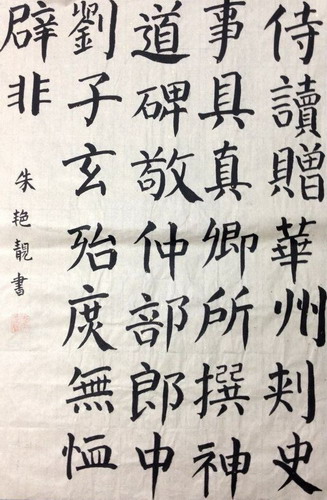 侍讀贈華州刾史
事具真卿所撰神
道碑敬仲部郎中
劉子玄殆庶無恤
辟非
朱艳靚書